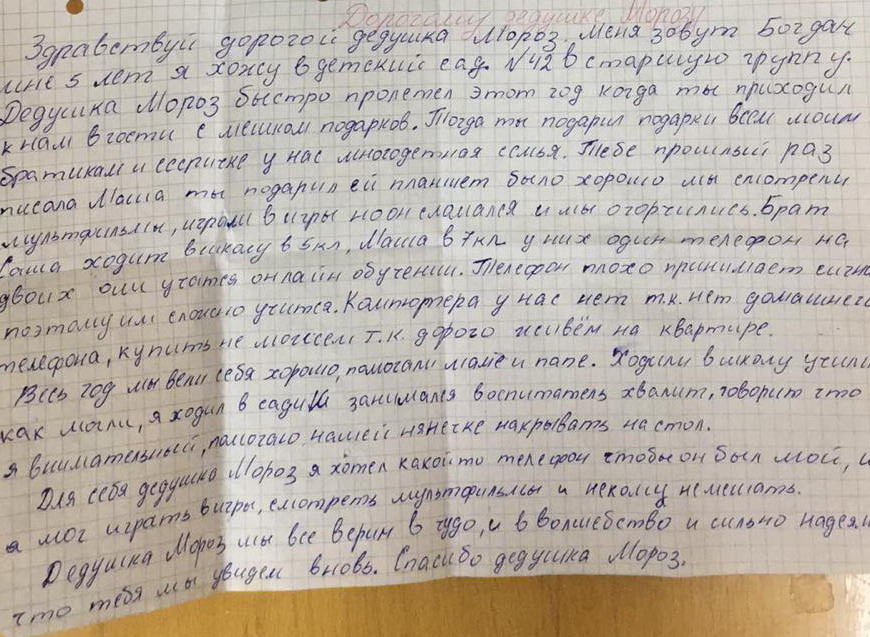 Дорогому дедушке Морозу
Здравствуй дорогой дедушка Мороз. Меня зовут Богдан
мне 5 лет я хожу в детский сад. N42 в старшую группу.
Дедушка Мороз быстро пролетел этот год когда ты приходил
к нам в гости с мешком подарков. Тогда ты подарил подарки всем моим
братикам и сестричке у нас многодетная семья. Тебе прошлый раз
писала Маша ты подарил ей планшет было хорошо мы смотрели
мультфильмы, играли в игры но он сламался и мы огорчились. Брат
Саша ходит в школу в 5 кл, Маша в 7 кл у них один телефон на
двоих они учатся онлайн обучении. Телефон плохо принимает сигна
поэтому им сложно учится. Компютера у нас нет т.к. нет домашнего
телефона, купить не можем т.к. дорого живём на квартире.
Весь год мы вели себя хорошо, помогали маме и папе. Ходили в школу учили
как могли, я ходил в садик занимался воспитатель хвалит, говорит что
я внимательный, помогаю нашей нянечке накрывать на стол.
Для себя дедушка Мороз я хотел какой то телефон чтобы он был мой, и
я мог играть в игры, смотреть мультфильмы и некому немешать.
Дедушка Мороз мы все верим в чудо, и в волшебство и сильно надеям
что тебя мы увидем вновь. Спасибо дедушка Мороз.